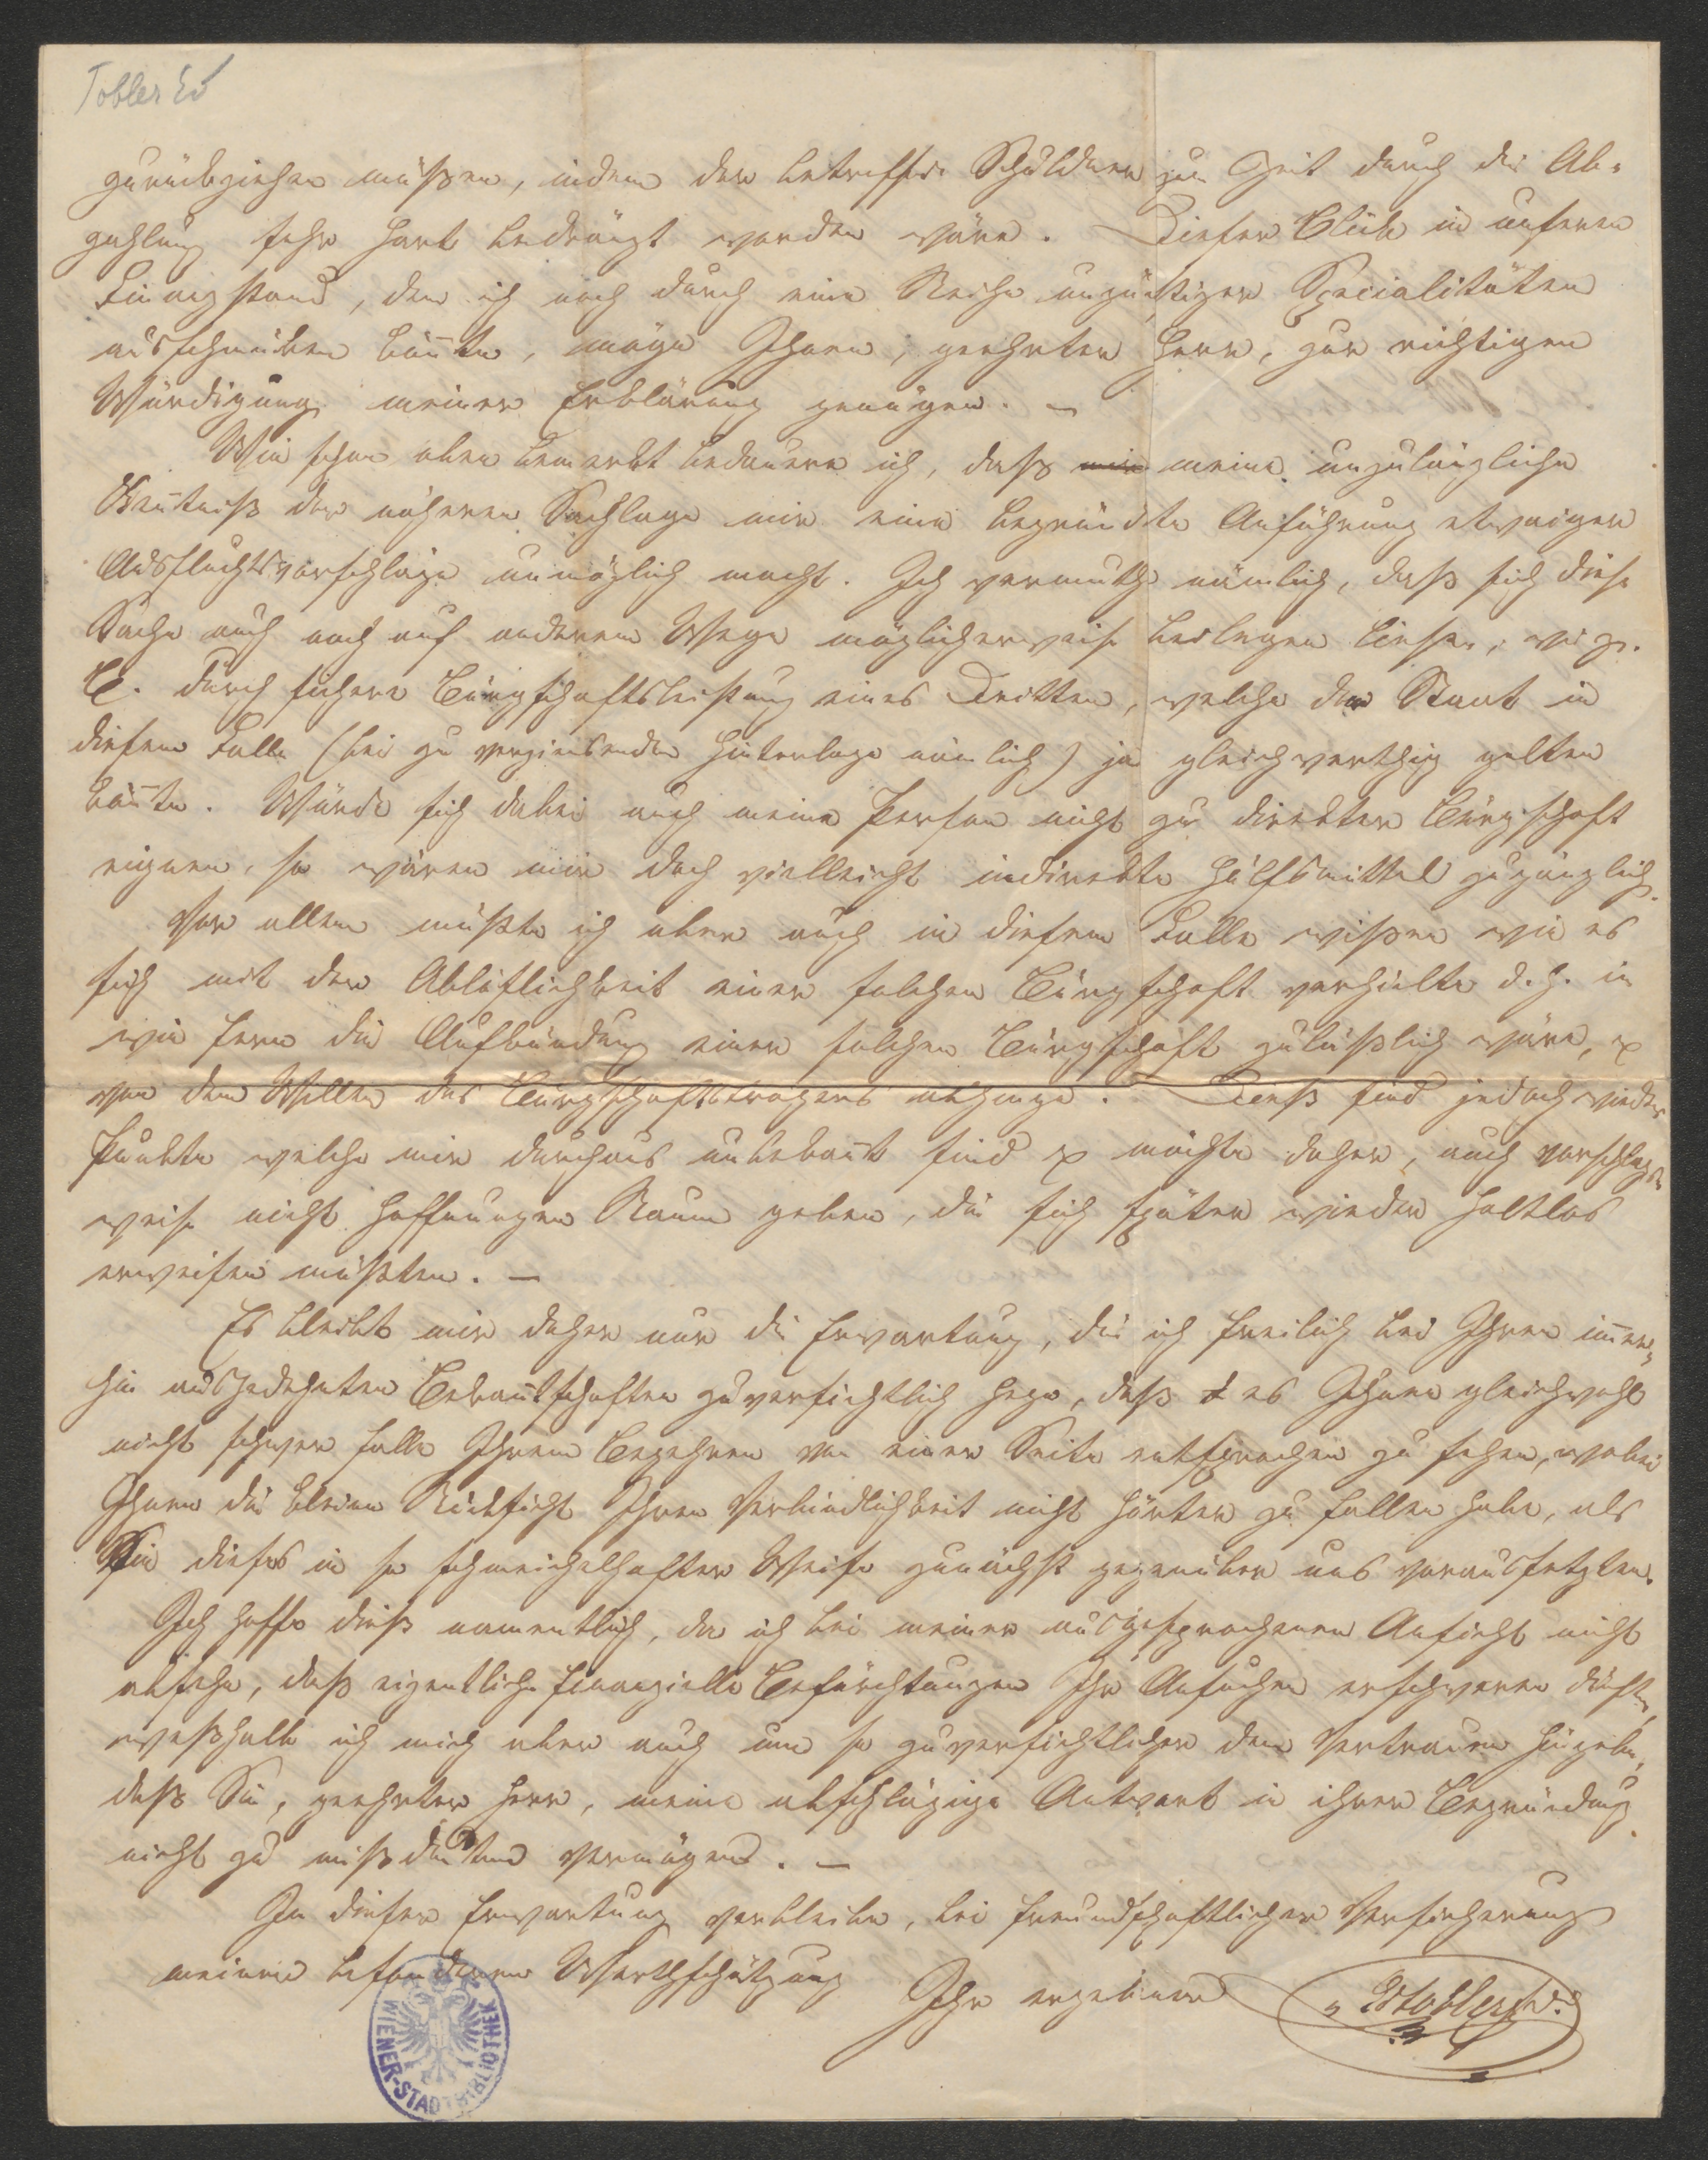 Tobler Ed
zurückziehen müßen, indem der betreffde Schuldner zur Zeit durch die Ab-
zahlung sehr hart bedrängt worden wäre. Dieser Blick in unseren
Finanzstand, den ich noch durch eine Reihe ungünstiger Specialitäten
ausschmücken könnte, möge Ihnen, geehrter Herr, zur richtigen
Würdigung meiner Erklärung genügen. –
Wie schon oben bemerkt bedauere ich, daß meine unzulängliche
Kenntniß der näheren Sachlage mir eine begründete Anführung etwaiger
Ausfluchtsvorschläge unmöglich macht. Ich vermuthe nämlich, daß sich diese
Sache auch noch auf anderem Wege möglicherweise beilegen ließe, wie z.
B. durch sichere Bürgschaftsleistung eines Dritten, welche der Staat in
diesem Falle (bei zu verzinsender Hinterlage nämlich) ja gleichwerthig gelten
könnte. Würde sich dabei auch meine Person nicht zu direkter Bürgschaft
eignen, so wären mir doch vielleicht indirekte Hülfsmittel zugänglich.
Vor allem müßte ich aber auch in diesem Falle wißen wie es
sich mit der Ablöslichkeit einer solchen Bürgschaft verhielte d. h. in
wie fern die Aufkündung einer solchen Bürgschaft zuläßlich wäre, &
von dem Willen des Bürgschaftstragers abhinge. Dieß sind jedoch wieder
Punkte welche mir durchaus unbekannt sind & möchte daher, auch vorschlags-
weise nicht Hoffnungen Raum geben, die sich später wieder haltlos
erweisen müßten. –
Es bleibt mir daher nur die Erwartung, die ich freilich bei Ihren immer-
hin ausgedehnten Bekanntschaften zuversichtlich hege, daß es Ihnen gleichwohl
nicht schwer falle Ihrem Begehren von einer Seite entsprochen zu sehen, wobei
Ihnen die kleine Rücksicht Ihrer Verbindlichkeit nicht härter zu fallen habe, als
Sie dieses in so schmeichelhafter Weise zunächst gegenüber uns voraussetzten.
Ich hoffe dieß namentlich, da ich bei meiner ausgesprochenen Ansicht nicht
absehe, daß eigentliche finanzielle Befürchtungen Ihr Ansuchen erschweren dürften,
weßhalb ich mich aber auch um so zuversichtlicher dem Vertrauen hingebe,
daß Sie, geehrter Herr, meine abschlägige Antwort in ihrer Begründung
nicht zu mißdeuten vermögen. –
In dieser Erwartung verbleibe, bei freundschaftlicher Versicherung
meiner besonderen Werthschätzung Ihr ergebener
EdTobler
WIENER-STADTBIBLIOTHEK